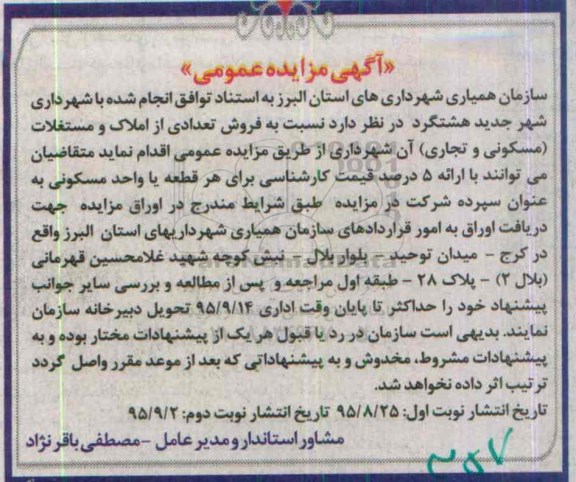 «آگهی مزایده عمومی»
سازمان همیاری شهرداری های استان البرز به استناد توافق انجام شده با شهرداری
شهر جدید هشتگرد در نظر دارد نسبت به فروش تعدادی از املاک و مستغلات
(مسکونی و تجاری) آن شهرداری از طریق مزایده عمومی اقدام نماید متقاضیان
می توانند با ارائه ۵ درصد قیمت کارشناسی برای هر قطعه یا واحد مسکونی به
عنوان سپرده شرکت در مزایده طبق شرایط مندرج در اوراق مزایده جهت
دریافت اوراق به امور قراردادهای سازمان همیاری شهرداریهای استان البرز واقع
در کرج - میدان توحید - بلوار بلال - نبش کوچه شهید غلامحسین قهرمانی
(بلال ۲) - پلاک ۲۸ - طبقه اول مراجعه و پس از مطالعه و بررسی سایر جوانب
پیشنهاد خود را حداکثر تا پایان وقت اداری ۹۵/۹/۱۴ تحویل دبیرخانه سازمان
نمایند. بدیهی است سازمان در رد یا قبول هر یک از پیشنهادات مختار بوده و به
پیشنهادات مشروط، مخدوش و به پیشنهاداتی که بعد از موعد مقرر واصل گردد
ترتیب اثر داده نخواهد شد.
تاریخ انتشار نوبت اول: ۹۵/۸/۲۵ تاریخ انتشار نوبت دوم: ۹۵/۹/۲
مشاور استاندار و مدیر عامل - مصطفی باقر نژاد